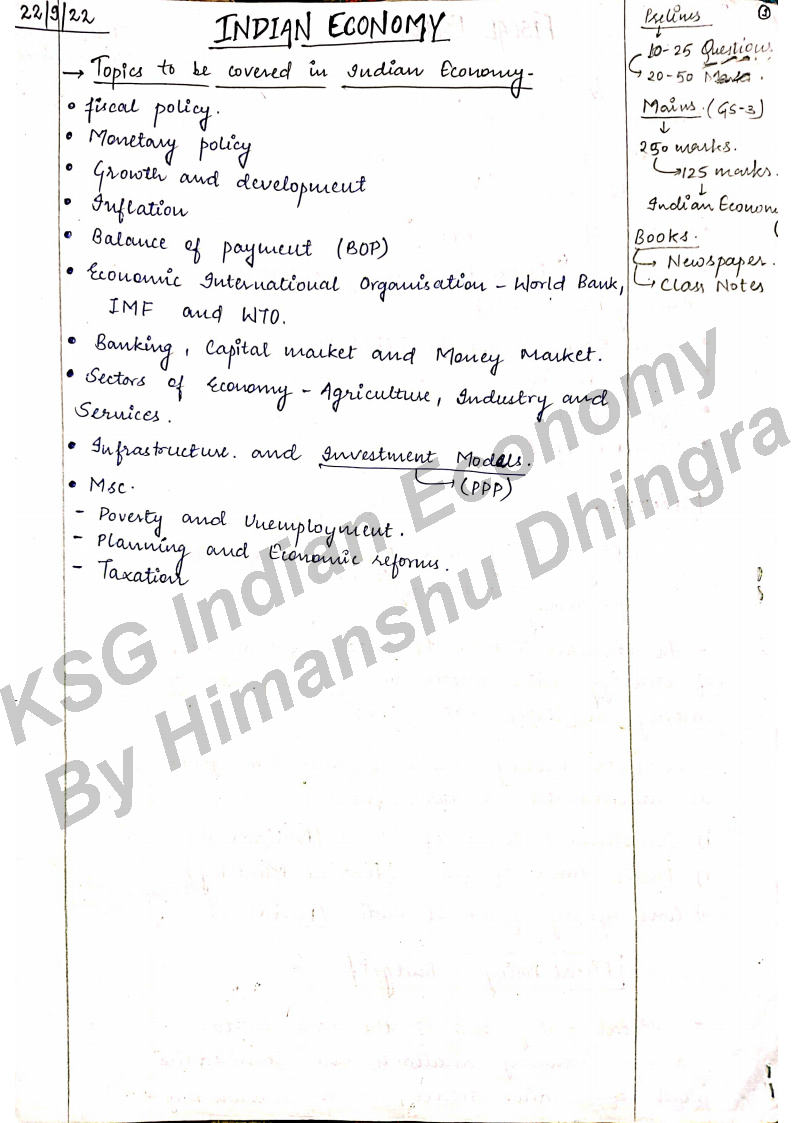 22/9/22
INDIAN ECONOMY
→ Topics to be covered in Indian Economy-
• fiscal policy.
• Monetary policy
• Growth and development
• Inflation
• Balance of payment (BOP)
• Economic International Organisation - World Bank,
IMF and WTO.
• Banking, Capital market and Money Market.
• Sectors of Economy - Agriculture, Industry and
Services.
• Infrastructure. and Investment Models.
(PPP)
• Msc.
- Poverty and Unemployment.
- Planning and Economic reforms.
- Taxation
Prelims
①
10-25 Questions
20-50 Marks.
Mains. (GS-3)
↓
250 marks.
→125 marks.
↓
Indian Econom
Books.
→ Newspaper.
→ Class Notes
KSG Indian Economy
By Himanshu Dhingra